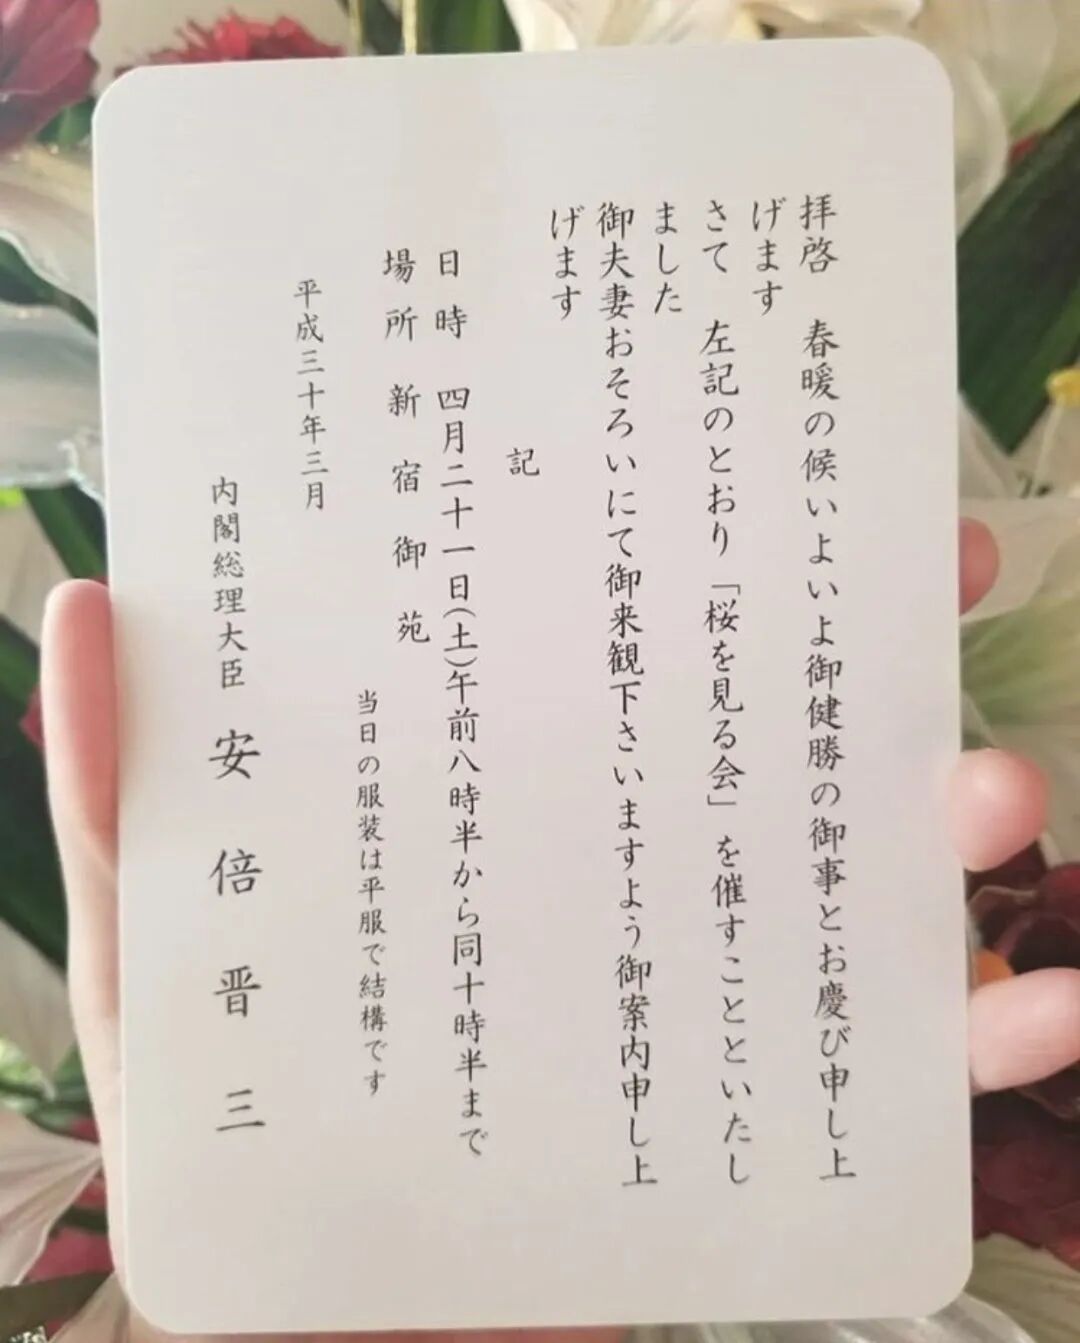 拝啓　春暖の候いよいよ御健勝の御事とお慶び申し上
げます
さて　左記のとおり「桜を見る会」を催すことといたし
ました
御夫妻おそろいにて御来観下さいますよう御案内申し上
げます
記
日時　四月二十一日(土)午前八時半から同十時半まで
場所　新宿御苑
当日の服装は平服で結構です
平成三十年三月
内閣総理大臣　安倍晋三